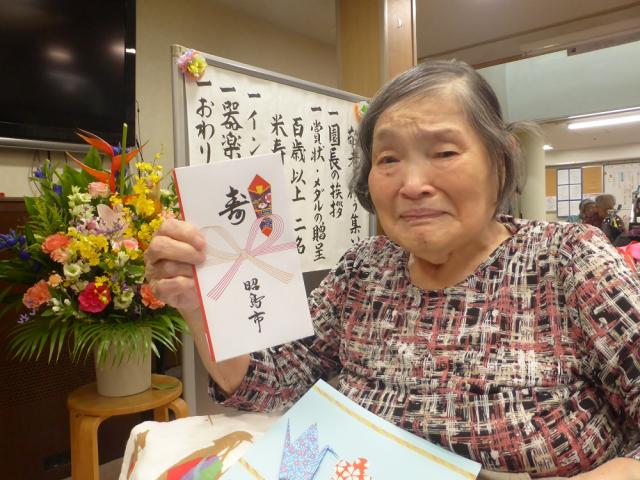 敬老
集い
一園長の挨拶
一賞状・メダルの贈呈
百歳以上 二名
米寿
一イン
一器楽
一おわり
寿
昭島市